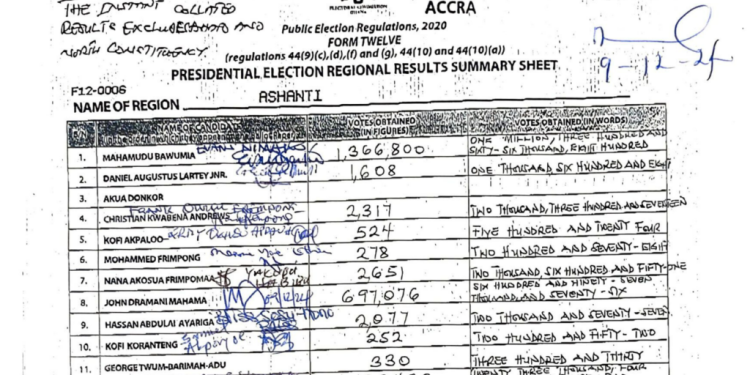 THE INSTANT COLLATED
RESULTS EXCLUDES AHAFO AND
NORTH CONSTITUENCY
ACCRA
Public Election Regulations, 2020
FORM TWELVE
(regulations 44(9)(c),(d),(f) and (g), 44(10) and 44(10)(a))
PRESIDENTIAL ELECTION REGIONAL RESULTS SUMMARY SHEET
9-12-24
F12-0006
NAME OF REGION ASHANTI
VOTES OBTAINED (IN FIGURES) VOTES OBTAINED (IN WORDS)
1. MAHAMUDU BAWUMIA 1,366,800 ONE MILLION, THREE HUNDRED AND SIXTY-SIX THOUSAND, EIGHT HUNDRED
2. DANIEL AUGUSTUS LARTEY JNR. 1,608 ONE THOUSAND, SIX HUNDRED AND EIGHT
3. AKUA DONKOR
4. CHRISTIAN KWABENA ANDREWS 2,317 TWO THOUSAND, THREE HUNDRED AND SEVENTEEN
5. KOFI AKPALOO 524 FIVE HUNDRED AND TWENTY FOUR
6. MOHAMMED FRIMPONG 278 TWO HUNDRED AND SEVENTY-EIGHT
7. NANA AKOSUA FRIMPOMAA 2651 TWO THOUSAND, SIX HUNDRED AND FIFTY-ONE
8. JOHN DRAMANI MAHAMA 697,076 SIX HUNDRED AND NINETY-SEVEN THOUSAND AND SEVENTY-SIX
9. HASSAN ABDULAI AYARIGA 2,077 TWO THOUSAND AND SEVENTY-SEVEN
10. KOFI KORANTENG 252 TWO HUNDRED AND FIFTY-TWO
11. GEORGE TWUM-BARIMAH-ADU 330 THREE HUNDRED AND THIRTY
TWENTY THREE THOUSAND, FOUR